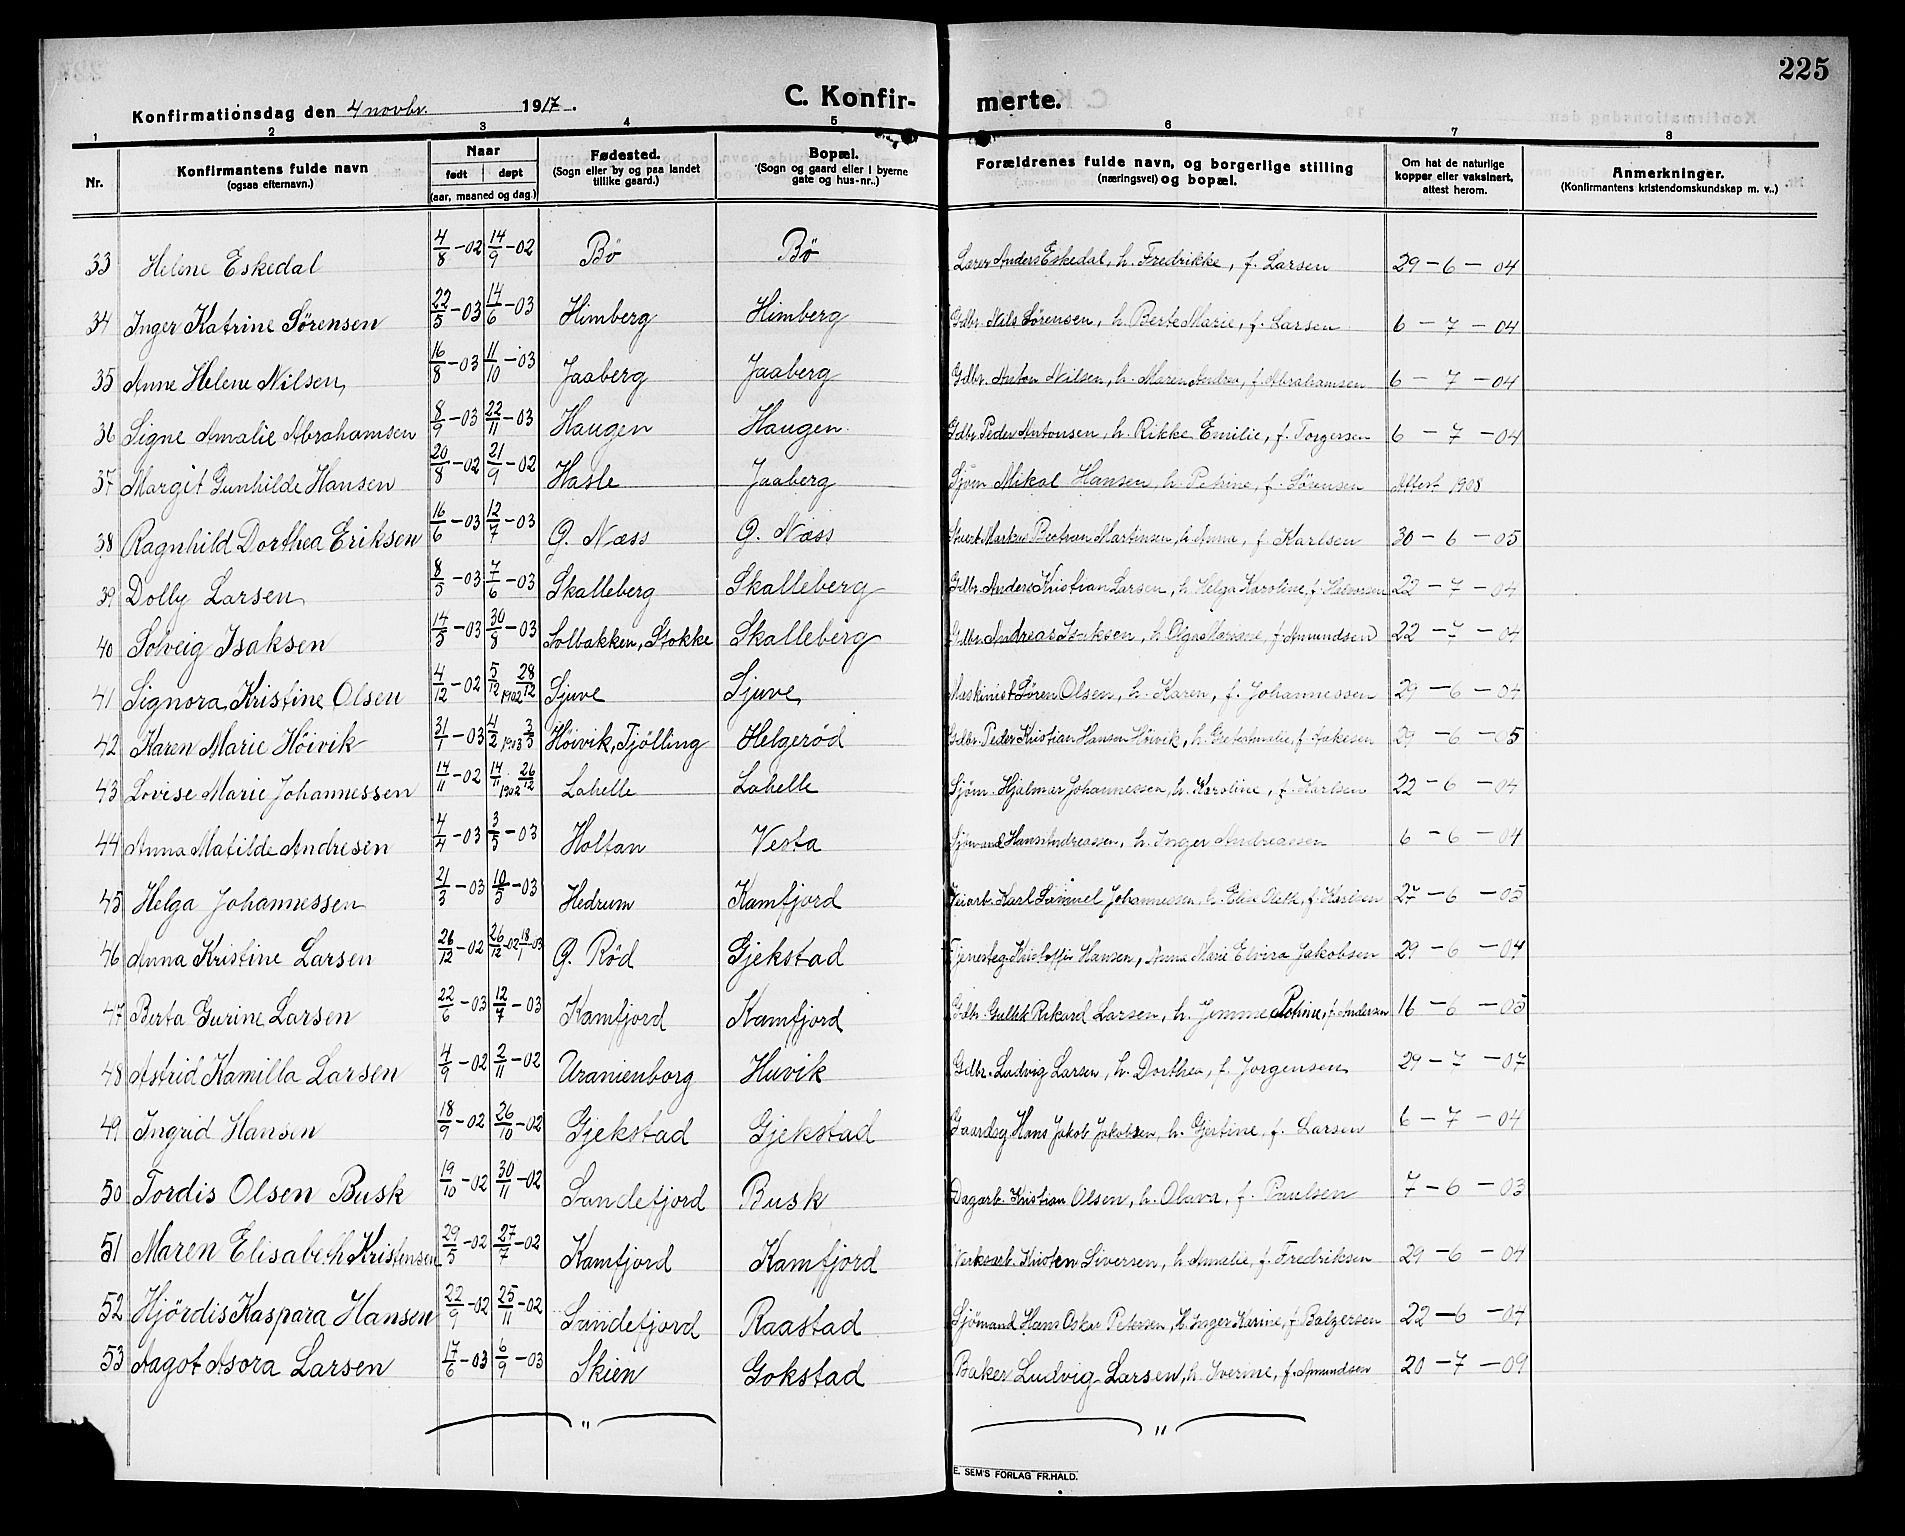 225
Konfirmationsdag den 4 novbr. 1917. C. Konfirmerte.
1 2 3 4 5 6 7 8
Nr. Konfirmantens fulde navn (ogsaa efternavn.) Naar født døpt (aar, maaned og dag.) Fødested. (Sogn eller by og paa landet tillike gaard.) Bopæl. (Sogn og gaard eller i byerne gate og hus-nr..) Forældrenes fulde navn, og borgerlige stilling (næringsvei) og bopæl. Om hat de naturlige kopper eller vaksinert, attest herom. Anmerkninger. (Konfirmantens kristendomskundskap m. v..)
33 Helene Eskedal 4/8-02 14/9-02 Bø Bø Lærer Anders Eskedal, h. Fredrikke, f. Larsen 29-6-04
34 Inger Katrine Sørensen 22/5-03 14/6-03 Himberg Himberg Gdbr. Nils Sørensen, h. Berte Marie, f. Larsen 6-7-04
35 Anne Helene Nilsen 16/8-03 11/10-03 Jaaberg Jaaberg Gdbr. Anton Nilsen, h. Maren Andrea, f. Abrahamsen 6-7-04
36 Signe Amalie Abrahamsen 8/9-03 22/11-03 Haugen Haugen Gdbr. Peder Antonsen, h. Rikke Emilie, f. Torgersen 6-7-04
37 Margit Gunhilde Hansen 20/8-02 21/9-02 Hasle Jaaberg Sjöm Mikal Hansen, h. Petrine, f. Sørensen Attest 1908
38 Ragnhild Dorthea Eriksen 16/6-03 12/7-03 Ø. Næss Ø. Næss Stuert Markus Martinsen, h. Anna, f. Karlsen 30-6-05
39 Dolly Larsen 8/5-03 7/6-03 Skalleberg Skalleberg Gdbr. Anders Kristian Larsen, h. Helga Karoline, f. Halvorsen 22-7-04
40 Solveig Isaksen 14/5-03 30/8-03 Solbakken, Stokke Skalleberg Gdbr. Andreas Isaksen, h. Olga Mariane, f. Amundsen 22-7-04
41 Signora Kristine Olsen 4/12-02 5/12 1902 28/12 Sjuve Sjuve Maskinist Søren Olsen, h. Karen, f. Johannessen 29-6-04
42 Karen Marie Höivik 31/1-03 4/2 1903 3/5 Höivik, Tjölling Helgeröd Gdbr. Peder Kristian Hansen Höivik, h. f. 29-6-05
43 Lovise Marie Johannessen 14/11-02 14/11 1902 26/12 Lahelle Lahelle Sjöm. Hjalmar Johannessen, h. Karoline, f. Karlsen 22-6-04
44 Anna Matilde Andresen 4/4-03 3/5-03 Holtan Vesta Sjömand Hans Andreassen, h. Inger Andreassen 6-6-04
45 Helga Johannessen 21/3-03 10/5-03 Hedrum Kamfjord Veiarb. Karl Samuel Johannessen, h. f. Karlsen 27-6-05
46 Anna Kristine Larsen 26/12-02 26/12-02 18/1-03 Ø. Röd Gjekstad Tjenesteg. Kristoffer Hansen, Anna Marie Elvira Jakobsen 29-6-04
47 Berta Gurine Larsen 22/6-03 12/7-03 Kamfjord Kamfjord Gdbr. Gullik Rikard Larsen, h. Jemine Petrine, f. Andersen 16-6-05
48 Astrid Kamilla Larsen 4/9-02 2/11-02 Uranienborg Huvik Gdbr. Ludvig Larsen, h. Dorthea, f. Jorgensen 29-7-07
49 Ingrid Hansen 18/9-02 26/10-02 Gjekstad Gjekstad Gaardsg Hans Jakob Jakobsen, h. Gjertine, f. Larsen 6-7-04
50 Tordis Olsen Busk 19/10-02 30/11-02 Sandefjord Busk Dagarb. Kristian Olsen, h. Olava, f. Paulsen 7-6-03
51 Maren Elisabeth Kristensen 29/5-02 27/7-02 Kamfjord Kamfjord Verksarb. Kristen Siversen, h. Amalie, f. Fredriksen 29-6-04
52 Hjördis Kaspara Hansen 22/9-02 25/11-02 Sandefjord Raastad Sjömand Hans Oskar Petersen, h. Inger Karine, f. Balzersen 22-6-04
53 Aagot Asora Larsen 17/6-03 6/9-03 Skien Gokstad Baker Ludvig Larsen, h. Iverine, f. Amundsen 20-7-09
" "
E. SEM'S FORLAG FR.HALD.